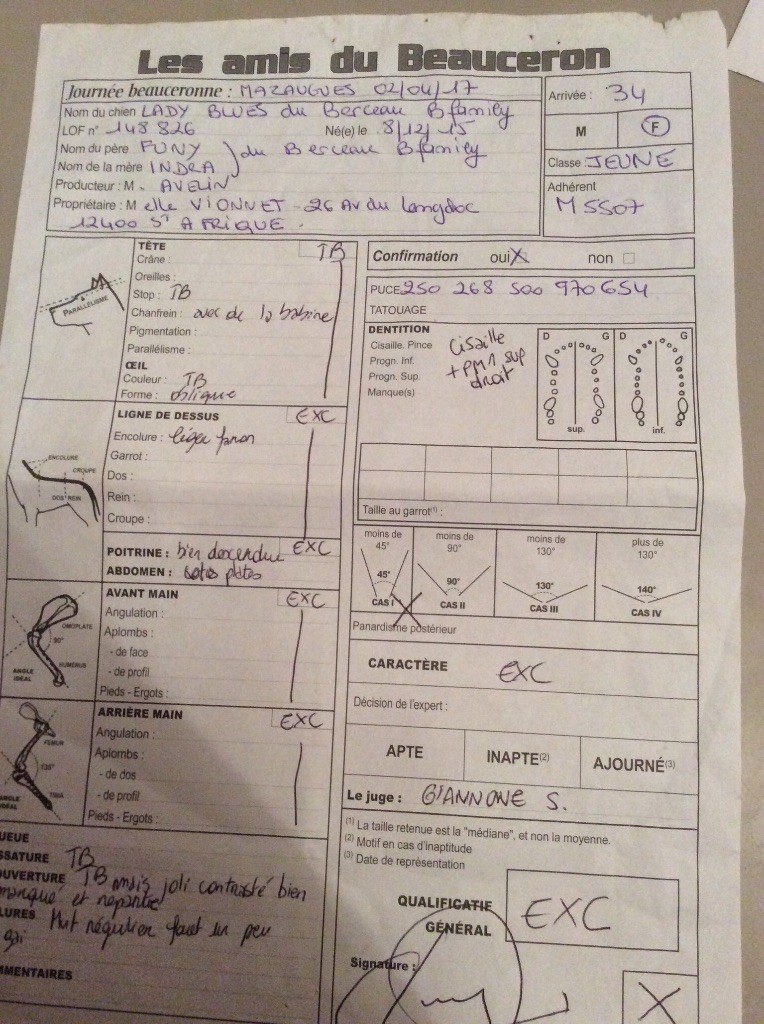 Les amis du Beauceron
Journée beauceronne : MAZAUGUES 02/04/17
Nom du chien LADY BLUES du Berceau Bfamily
LOF n° 148 826 Né(e) le : 8/12/15
Nom du père FUNY
Nom de la mère INDRA } du Berceau Bfamily
Producteur : M. AVELIN
Propriétaire : M elle VIONNET - 26 Av du Langdoc
12400 St AFRIQUE.
Arrivée : 34
M F
Classe : JEUNE
Adhérent
M5507
PARALLÉLISME
TÊTE TB
Crâne :
Oreilles :
Stop : TB
Chanfrein : avec de la babine
Pigmentation :
Parallélisme :
ŒIL
Couleur : TB
Forme : oblique
ENCOLURE
CROUPE
DOS REIN
LIGNE DE DESSUS EXC
Encolure : léger fanon
Garrot :
Dos :
Rein :
Croupe :
POITRINE : bien descendue EXC
ABDOMEN : plates
OMOPLATE
90°
HUMÉRUS
ANGLE IDÉAL
AVANT MAIN EXC
Angulation :
Aplombs :
- de face
- de profil
Pieds - Ergots :
FEMUR
TIBIA
ANGLE IDÉAL
ARRIÈRE MAIN EXC
Angulation :
Aplombs :
- de dos
- de profil
Pieds - Ergots :
UEUE
SSATURE TB
OUVERTURE TB mais joli contrasté bien
marqué et
LURES régulier fouet un peu
gai
MMENTAIRES
Confirmation oui X non
PUCE 250 268 500 970 654
TATOUAGE
DENTITION
Cisaille. Pince
Progn. Inf.
Progn. Sup.
Manque(s)
Cisaille
+ PM1 sup
droit
D G D G
sup. inf.
Taille au garrot(1) :
moins de 45° moins de 90° moins de 130° plus de 130°
45° 90° 130° 140°
CAS I CAS II CAS III CAS IV
Panardisme postérieur
CARACTÈRE EXC
Décision de l'expert :
APTE INAPTE(2) AJOURNÉ(3)
Le juge : GIANNONE S.
(1) La taille retenue est la "médiane", et non la moyenne.
(2) Motif en cas d'inaptitude
(3) Date de représentation
QUALIFICATIF
GÉNÉRAL
EXC
Signature :
X